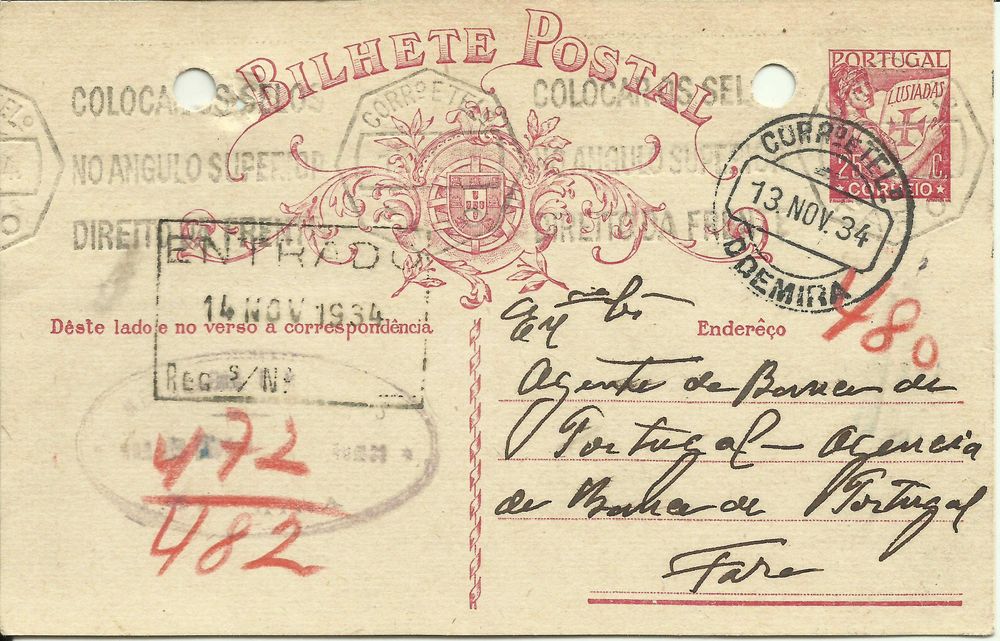 BILHETE POSTAL
PORTUGAL
LUSIADAS
25 C.
CORREIO
COLOCAR OS SELOS
NO ANGULO SUPERIOR
DIREITO DA FRENTE
CORRº E TELº
COLOCAR OS SELOS
NO ANGULO SUPERIOR
DIREITO DA FRENTE
CORRº E TELº
13 NOV. 34
ODEMIRA
ENTRADO
14 NOV 1934
REG S/Nº
Dêste lado e no verso a correspondência
Endereço
480
Exmo
Agente do Banco de
Portugal - Agencia
do Banco de Portugal
Faro
472
482